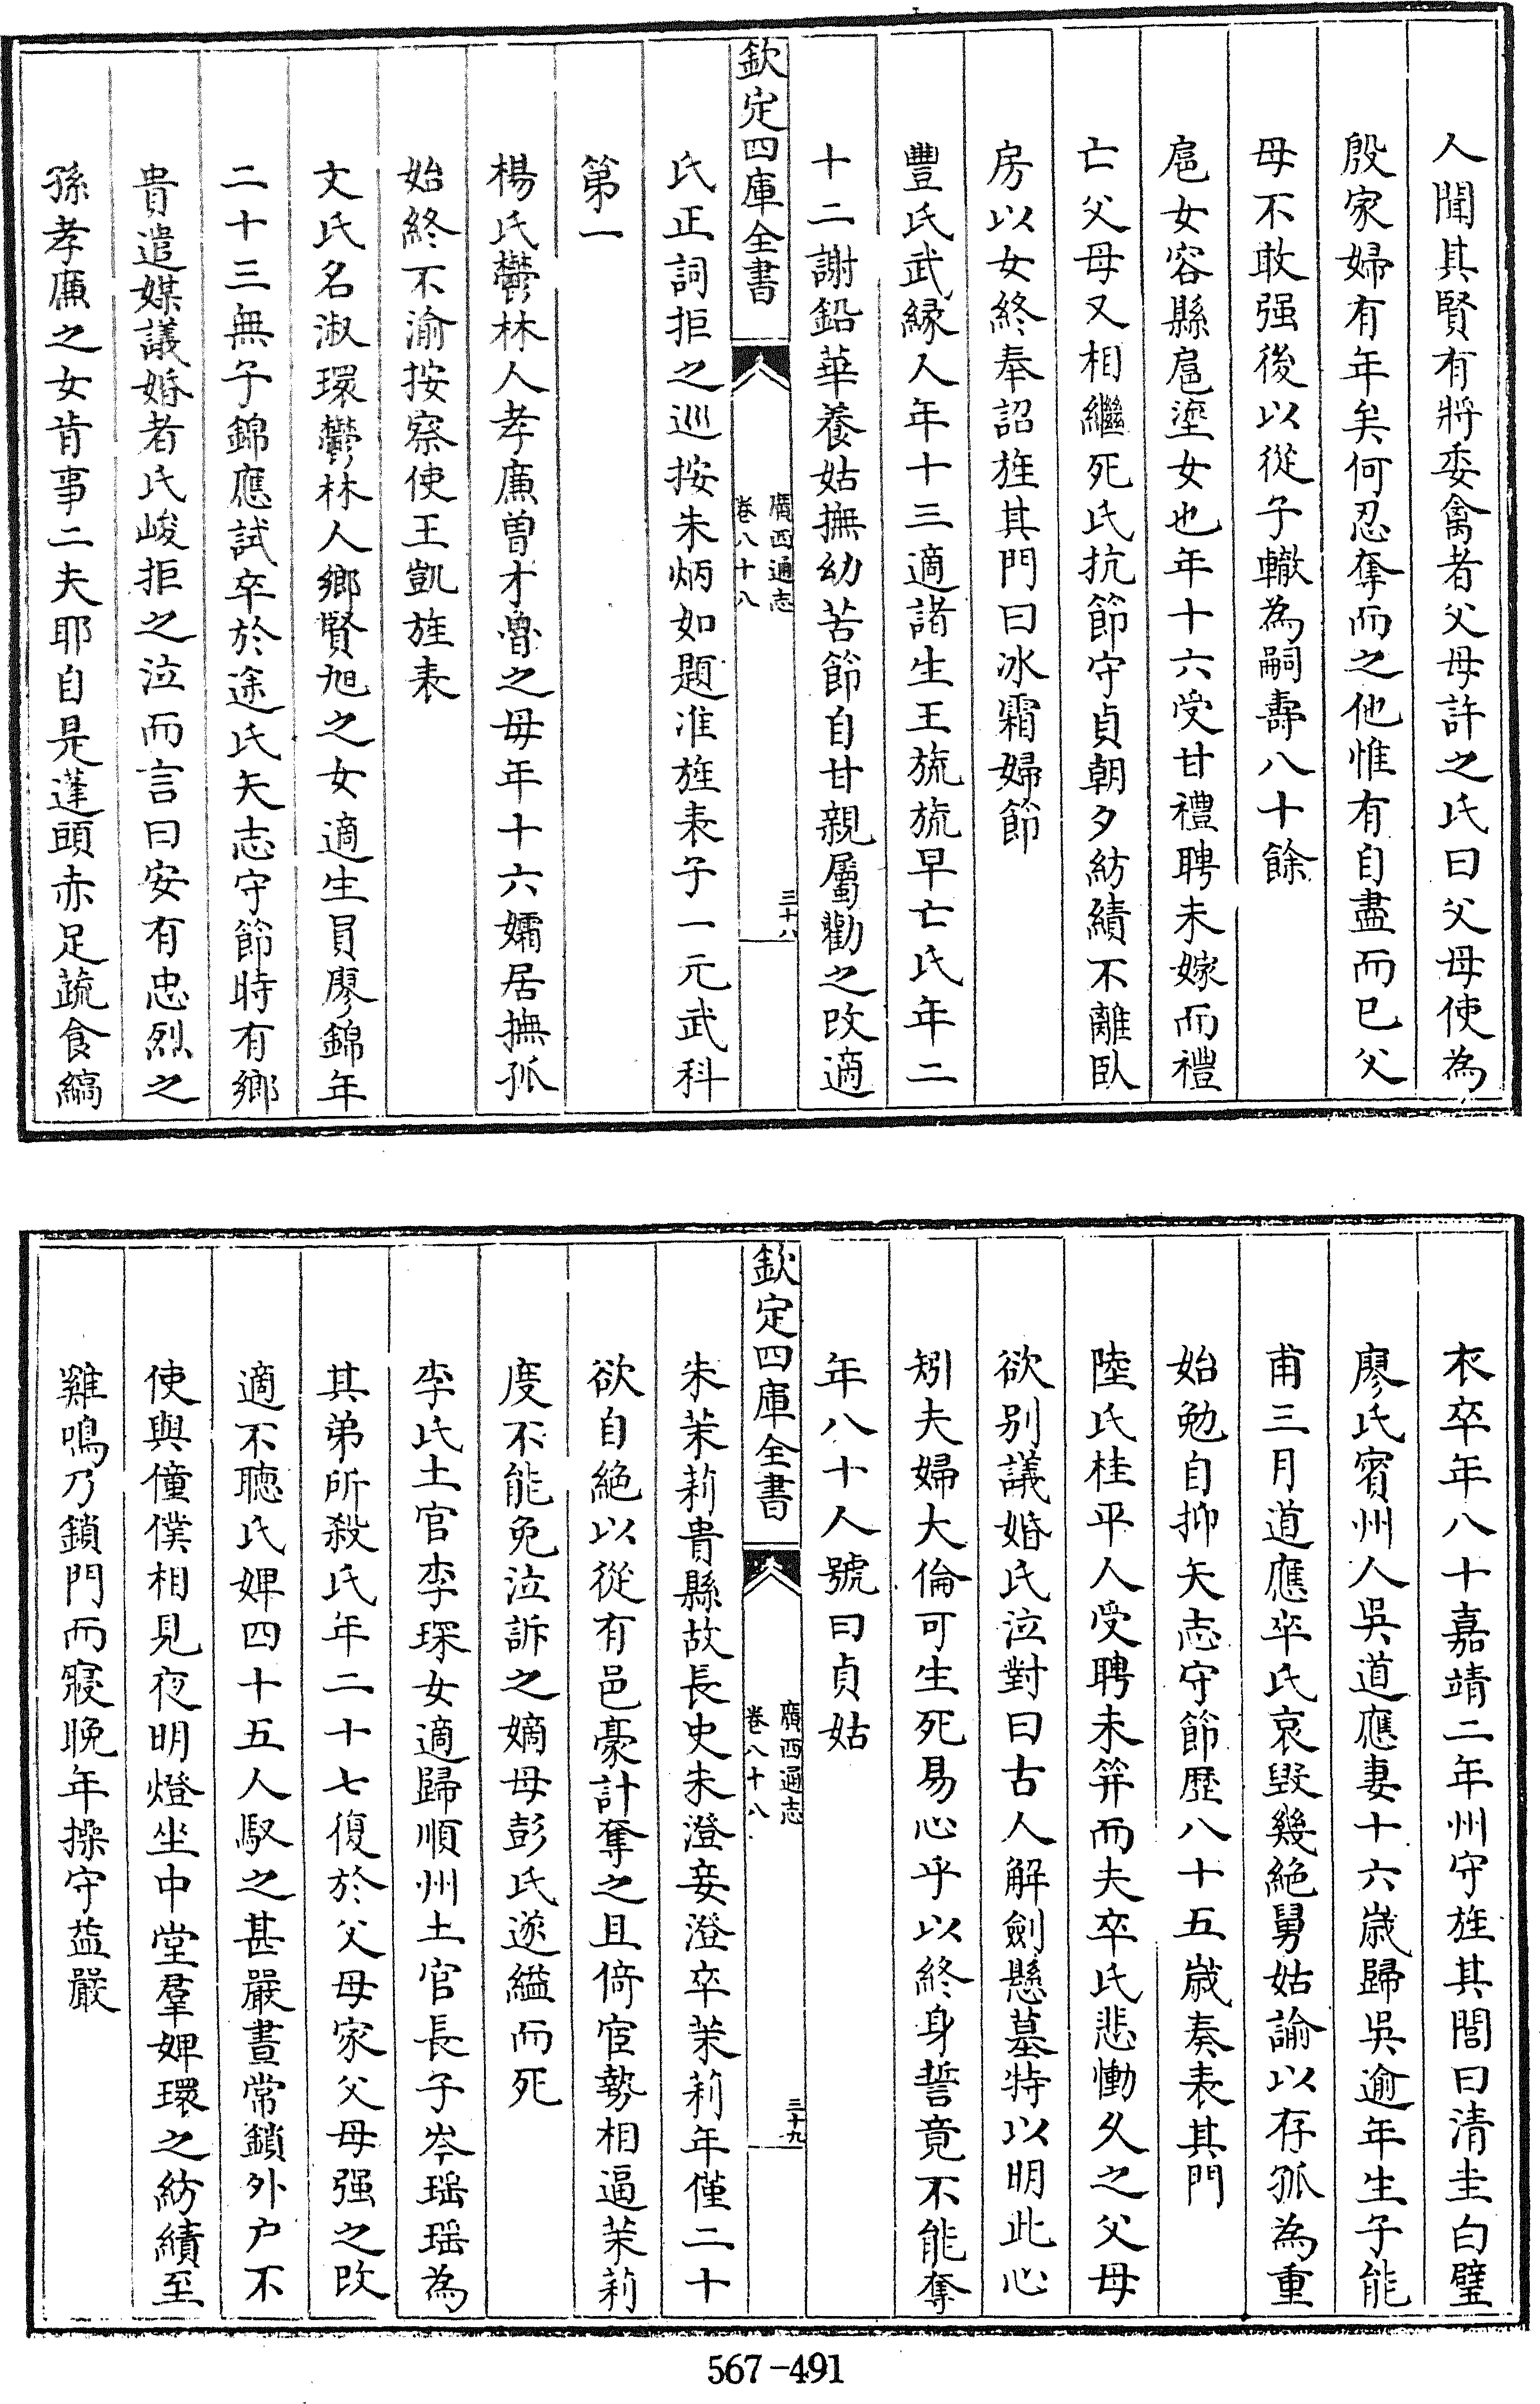 人聞其賢有將委禽者父母許之氏曰父母使為
殷家婦有年矣何忍奪而之他惟有自盡而已父
母不敢强後以從子轍為嗣壽八十餘
扈女容縣扈塗女也年十六受甘禮聘未嫁而禮
亡父母又相繼死氏抗節守貞朝夕紡績不離臥
房以女終奉詔旌其門曰冰霜婦節
豐氏武緣人年十三適諸生王旒旒早亡氏年二
十二謝鉛華養姑撫幼苦節自甘親屬勸之改適
欽定四庫全書
廣西通志
卷八十八
三十八
氏正詞拒之巡按朱炳如題准旌表子一元武科
第一
楊氏鬱林人孝廉曾才魯之母年十六孀居撫孤
始終不渝按察使王凱旌表
文氏名淑環鬱林人鄉賢旭之女適生員廖錦年
二十三無子錦應試卒於途氏矢志守節時有鄉
貴遣媒議婚者氏峻拒之泣而言曰安有忠烈之
孫孝廉之女肯事二夫耶自是蓬頭赤足蔬食縞
衣卒年八十嘉靖二年州守旌其閭曰清圭白璧
廖氏賓州人吳道應妻十六歲歸吳逾年生子能
甫三月道應卒氏哀毀幾絶舅姑諭以存孤為重
始勉自抑矢志守節歷八十五歲奏表其門
陸氏桂平人受聘未笄而夫卒氏悲慟久之父母
欲别議婚氏泣對曰古人解劍懸墓特以明此心
矧夫婦大倫可生死易心乎以終身誓竟不能奪
年八十人號曰貞姑
欽定四庫全書
廣西通志
卷八十八
三十九
朱茉莉貴縣故長史朱澄妾澄卒茉莉年僅二十
欲自絶以從有邑豪計奪之且倚宦勢相逼茉莉
度不能免泣訴之嫡母彭氏遂縊而死
李氏土官李琛女適歸順州土官長子岑瑶瑶為
其弟所殺氏年二十七復於父母家父母强之改
適不聽氏婢四十五人馭之甚嚴晝常鎖外户不
使與僮僕相見夜明燈坐中堂羣婢環之紡績至
雞鳴乃鎖門而寢晚年操守益嚴
567-491